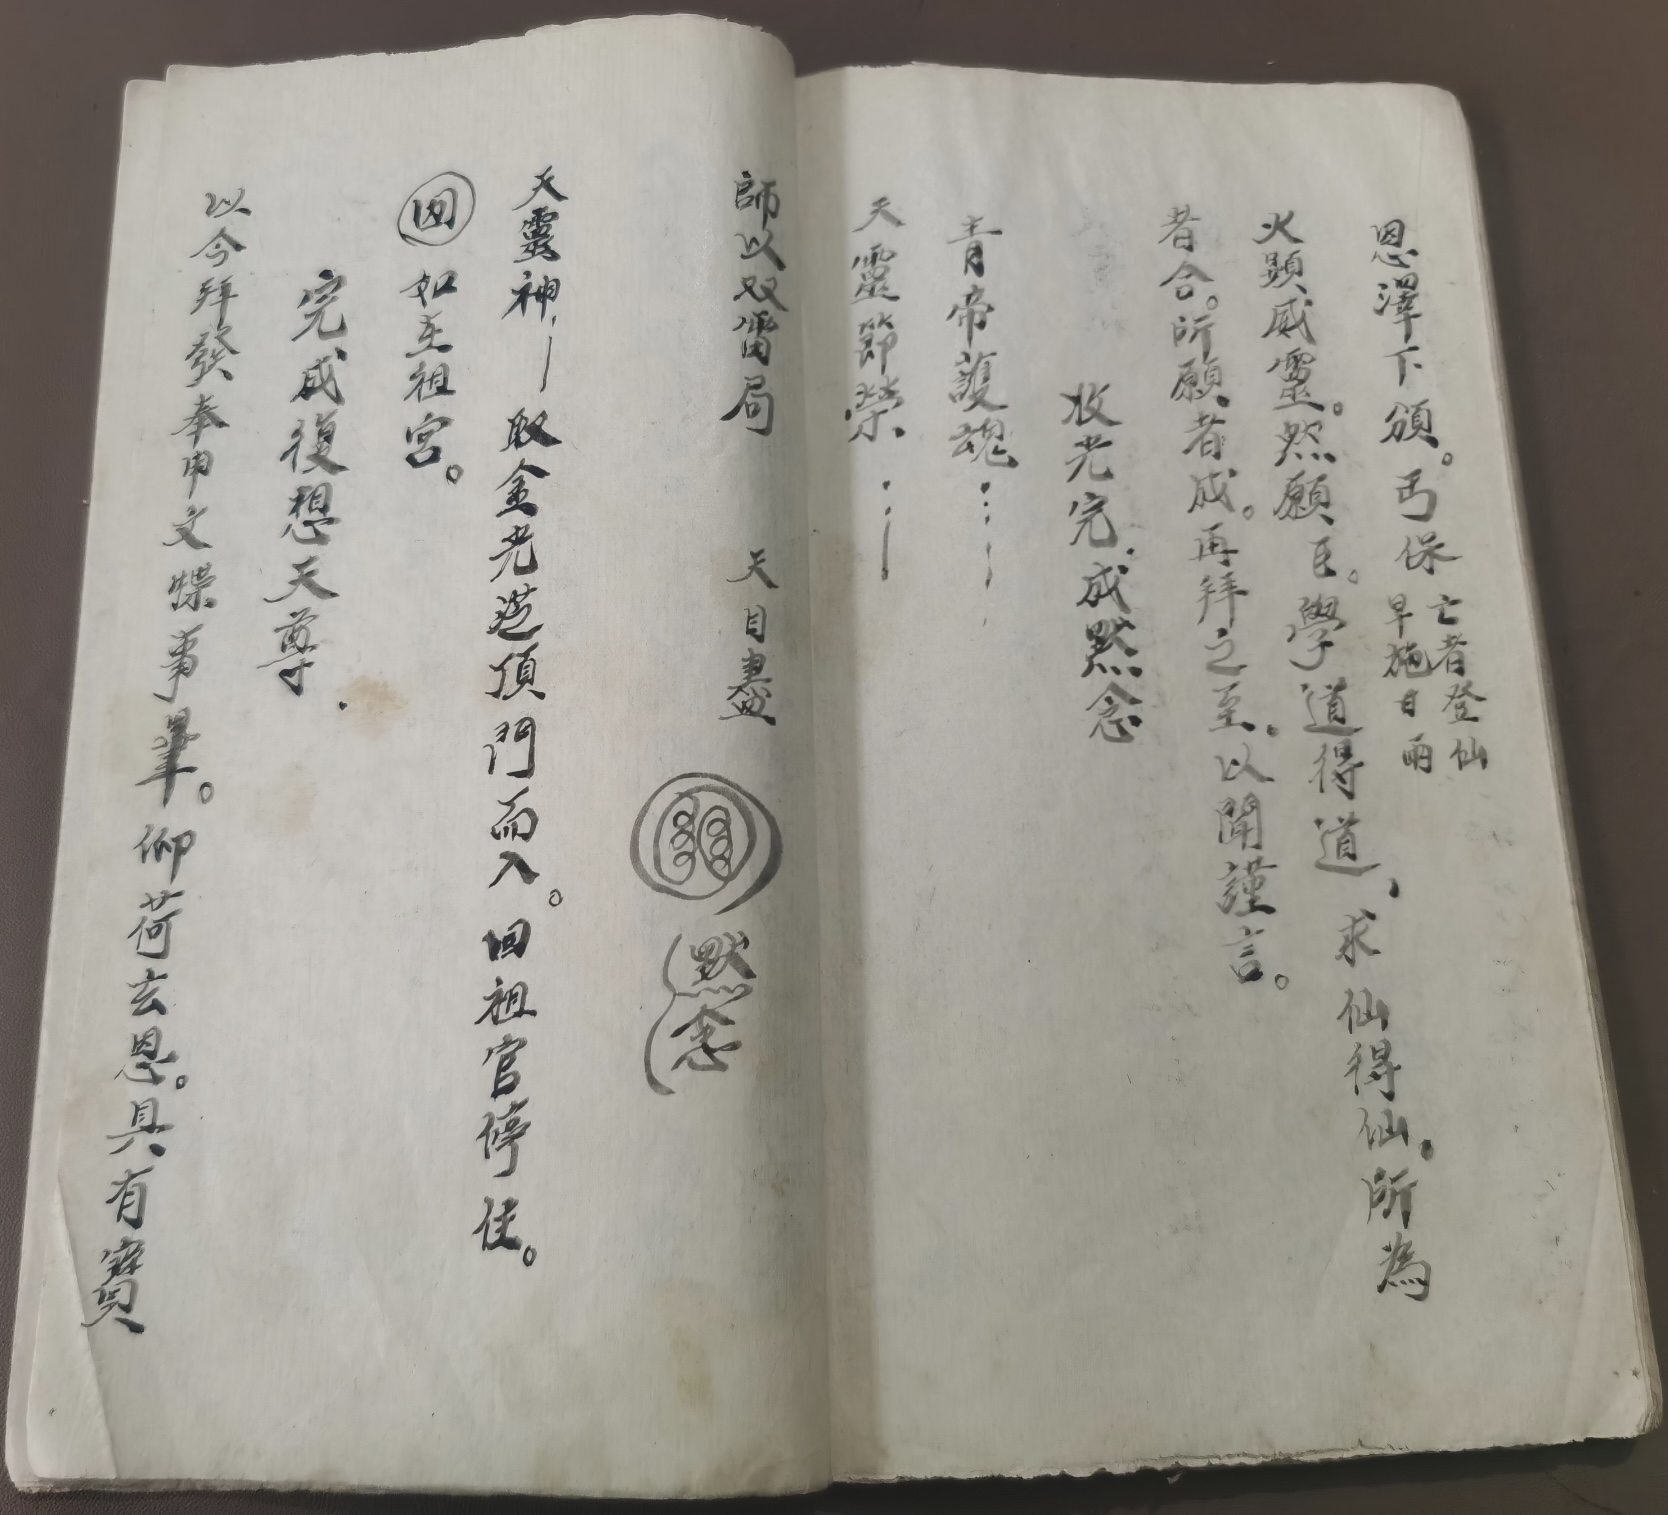 恩澤下頒。丐保亡者登仙
早施日雨
火顯威靈。然願臣。學道得道、求仙得仙。所為
者合。所願者成。再拜之至。以聞謹言。
收光完成默念
青帝護魂
天靈節榮
師以双雷局 天目盡
默念
天靈神 取金光從頂門而入。回祖官停住。
如至祖宮。
完成復想天尊
以今拜發奉申文牒事畢。仰荷玄恩。具有寶